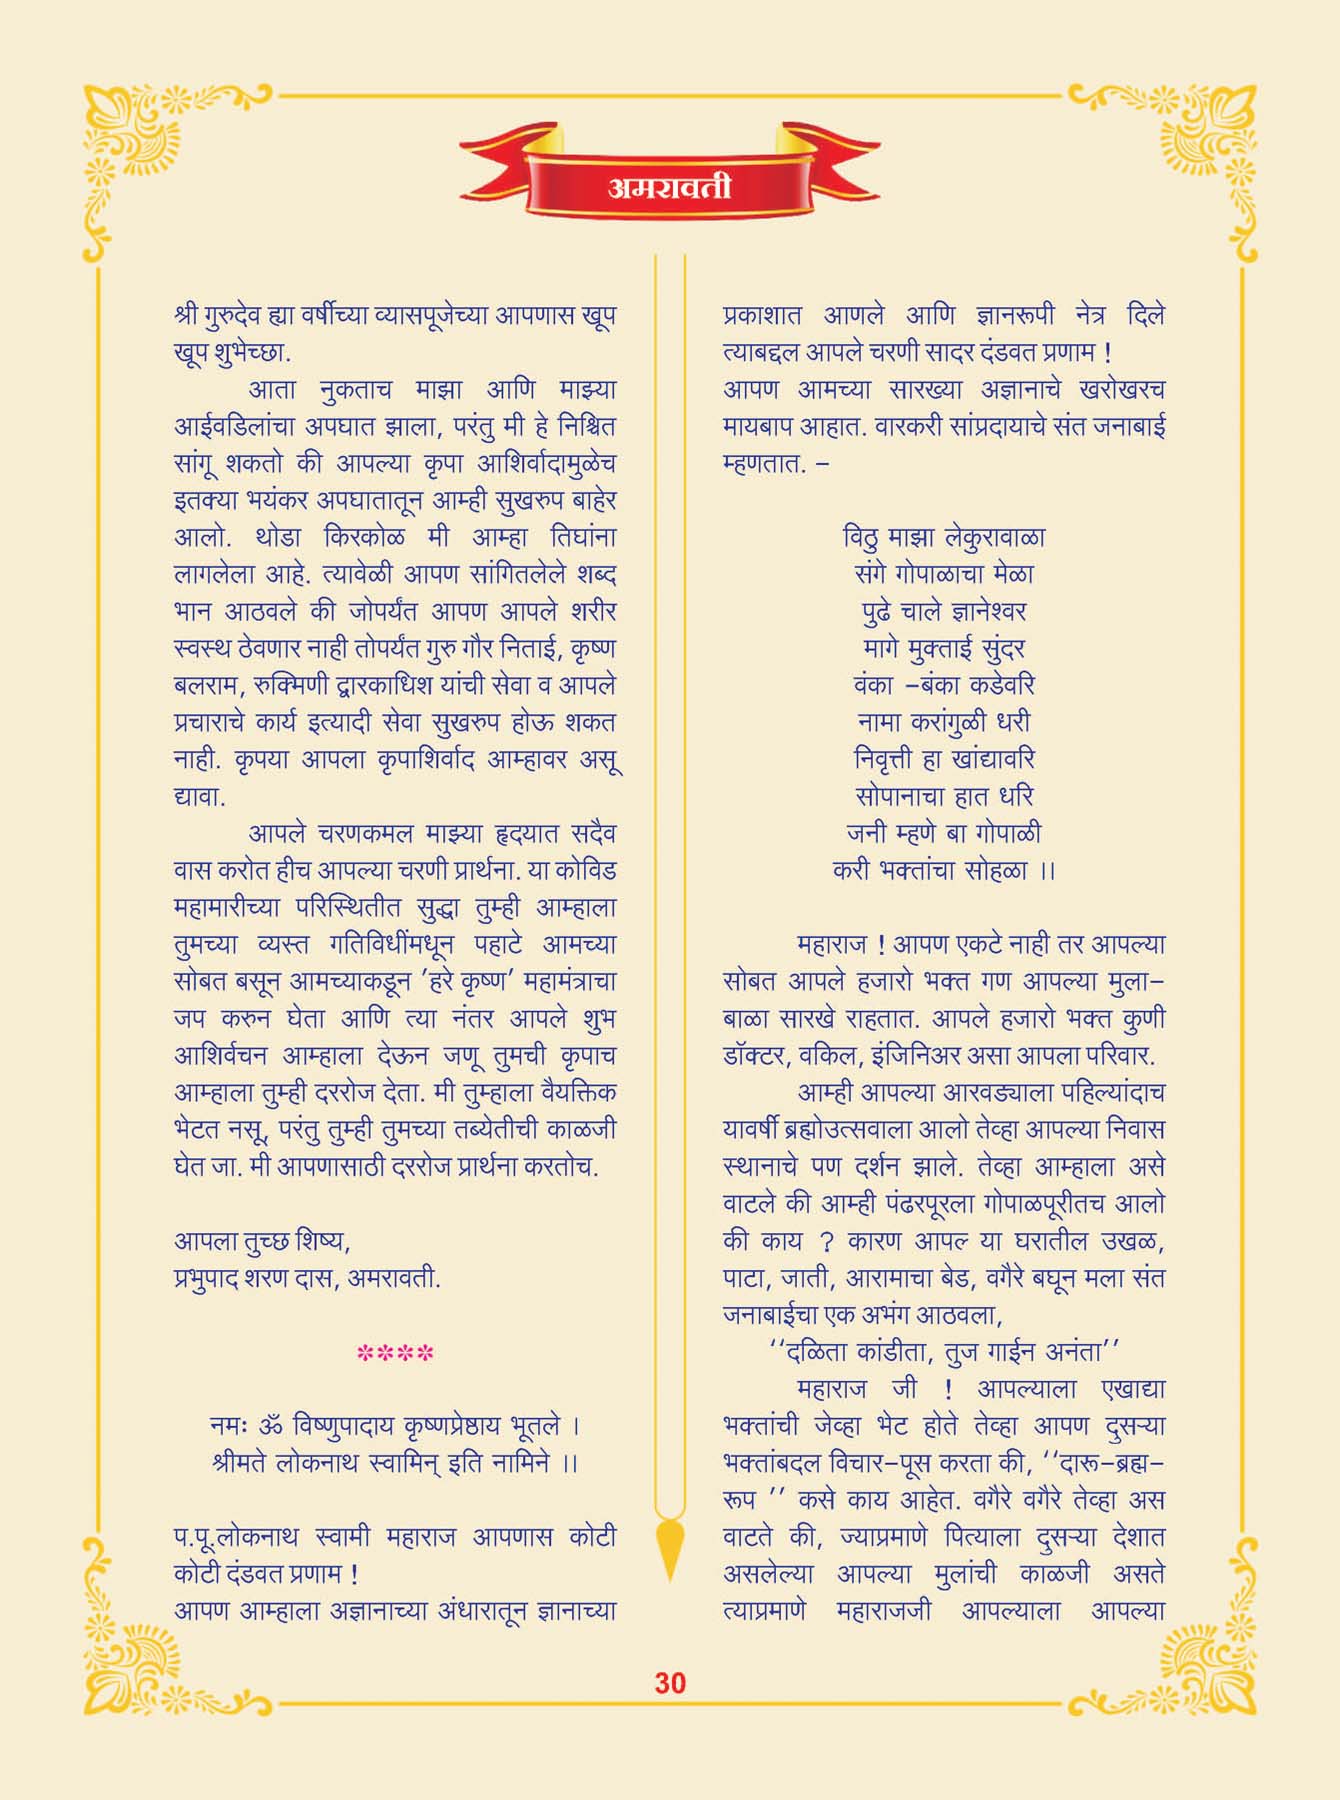 अमरावती
श्री गुरुदेव ह्या वर्षीच्या व्यासपूजेच्या आपणास खूप
खूप शुभेच्छा.
आता नुकताच माझा आणि माझ्या
आईवडिलांचा अपघात झाला, परंतु मी हे निश्चित
सांगू शकतो की आपल्या कृपा आशिर्वादामुळेच
इतक्या भयंकर अपघातातून आम्ही सुखरुप बाहेर
आलो. थोडा किरकोळ मी आम्हा तिघांना
लागलेला आहे. त्यावेळी आपण सांगितलेले शब्द
भान आठवले की जोपर्यंत आपण आपले शरीर
स्वस्थ ठेवणार नाही तोपर्यंत गुरु गौर निताई, कृष्ण
बलराम, रुक्मिणी द्वारकाधिश यांची सेवा व आपले
प्रचाराचे कार्य इत्यादी सेवा सुखरुप होऊ शकत
नाही. कृपया आपला कृपाशिर्वाद आम्हावर असू
द्यावा.
आपले चरणकमल माझ्या हृदयात सदैव
वास करोत हीच आपल्या चरणी प्रार्थना. या कोविड
महामारीच्या परिस्थितीत सुद्धा तुम्ही आम्हाला
तुमच्या व्यस्त गतिविधींमधून पहाटे आमच्या
सोबत बसून आमच्याकडून ’हरे कृष्ण’ महामंत्राचा
जप करुन घेता आणि त्या नंतर आपले शुभ
आशिर्वचन आम्हाला देऊन जणू तुमची कृपाच
आम्हाला तुम्ही दररोज देता. मी तुम्हाला वैयक्तिक
भेटत नसू, परंतु तुम्ही तुमच्या तब्येतीची काळजी
घेत जा. मी आपणासाठी दररोज प्रार्थना करतोच.
आपला तुच्छ शिष्य,
प्रभुपाद शरण दास, अमरावती.
****
नमः ॐ विष्णुपादाय कृष्णप्रेष्ठाय भूतले ।
श्रीमते लोकनाथ स्वामिन् इति नामिने ।।
प.पू.लोकनाथ स्वामी महाराज आपणास कोटी
कोटी दंडवत प्रणाम !
आपण आम्हाला अज्ञानाच्या अंधारातून ज्ञानाच्या
प्रकाशात आणले आणि ज्ञानरूपी नेत्र दिले
त्याबद्दल आपले चरणी सादर दंडवत प्रणाम !
आपण आमच्या सारख्या अज्ञानाचे खरोखरच
मायबाप आहात. वारकरी सांप्रदायाचे संत जनाबाई
म्हणतात. –
विठु माझा लेकुरावाळा
संगे गोपाळाचा मेळा
पुढे चाले ज्ञानेश्वर
मागे मुक्ताई सुंदर
वंका –बंका कडेवरि
नामा करांगुळी धरी
निवृत्ती हा खांद्यावरि
सोपानाचा हात धरि
जनी म्हणे बा गोपाळी
करी भक्तांचा सोहळा ।।
महाराज ! आपण एकटे नाही तर आपल्या
सोबत आपले हजारो भक्त गण आपल्या मुला–
बाळा सारखे राहतात. आपले हजारो भक्त कुणी
डॉक्टर, वकिल, इंजिनिअर असा आपला परिवार.
आम्ही आपल्या आरवड्याला पहिल्यांदाच
यावर्षी ब्रह्मोउत्सवाला आलो तेव्हा आपल्या निवास
स्थानाचे पण दर्शन झाले. तेव्हा आम्हाला असे
वाटले की आम्ही पंढरपूरला गोपाळपूरीतच आलो
की काय ? कारण आपल्‍ या घरातील उखळ,
पाटा, जाती, आरामाचा बेड, वगैरे बघून मला संत
जनाबाईचा एक अभंग आठवला,
‘‘दळिता कांडीता, तुज गाईन अनंता’’
महाराज जी ! आपल्याला एखाद्या
भक्तांची जेव्हा भेट होते तेव्हा आपण दुसऱ्या
भक्तांबदल विचार–पूस करता की, ‘‘दारू–ब्रह्म–
रूप ’’ कसे काय आहेत. वगैरे वगैरे तेव्हा अस
वाटते की, ज्याप्रमाणे पित्याला दुसऱ्या देशात
असलेल्या आपल्या मुलांची काळजी असते
त्याप्रमाणे महाराजजी आपल्याला आपल्या
30